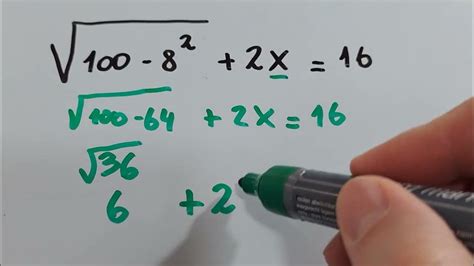 √100 - 8² + 2x = 16
√100-64 + 2x = 16
√36
6 + 2